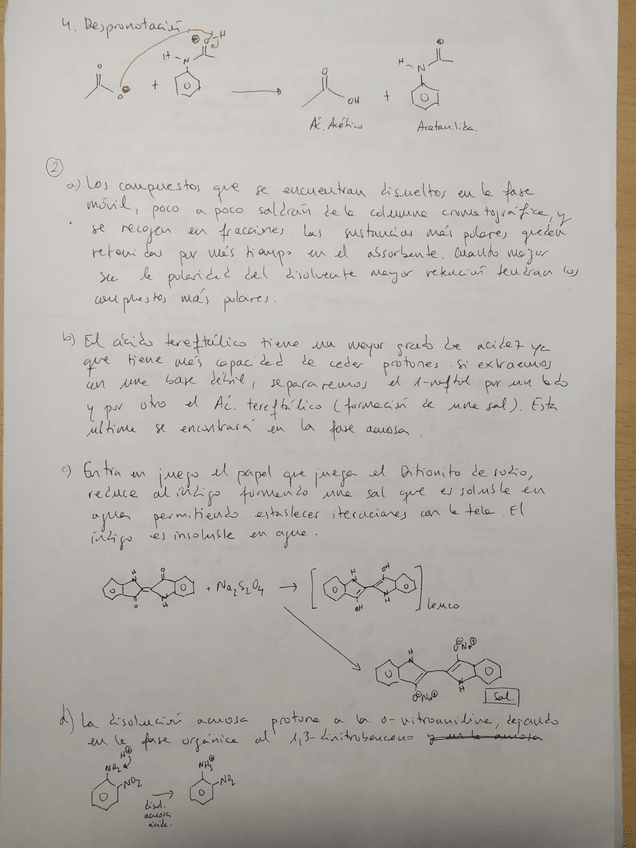 4. Desprotonación
O
O ⊖
+
H
N
⊕
O
H
→
O
OH
+
H
N
O
Ác. Acético
Acetanilida.
②
a) Los compuestos que se encuentran disueltos en la fase
móvil, poco a poco saldrán de la columna cromatográfica, y
se recogen en fracciones. Las sustancias más polares quedan
retenidas por más tiempo en el absorbente. Cuanto mayor
sea la polaridad del disolvente mayor retención tendrán los
compuestos más polares.
b) El ácido tereftálico tiene un mayor grado de acidez ya
que tiene más capacidad de ceder protones. Si extraemos
con una base débil, separaremos el 1-naftol por un lado
y por otro el Ác. tereftálico (formación de una sal). Esta
última se encontrará en la fase acuosa.
c) Entra en juego el papel que juega el Ditionito de sodio,
reduce al índigo formando una sal que es soluble en
agua permitiendo establecer iteraciones con la tela. El
índigo es insoluble en agua.
H
N
O
O
N
H
+ Na2S2O4 →
[
H
N
OH
OH
N
H
] Leuco
H
N
O⊖Na⊕
O⊖Na⊕
N
H
Sal
d) La disolución acuosa protona a la o-nitroanilina, dejando
en la fase orgánica al 1,3-dinitrobenceno y en la acuosa
H⊕
NH2
NO2
→
disol.
acuosa
ácida.
NH3⊕
NO2